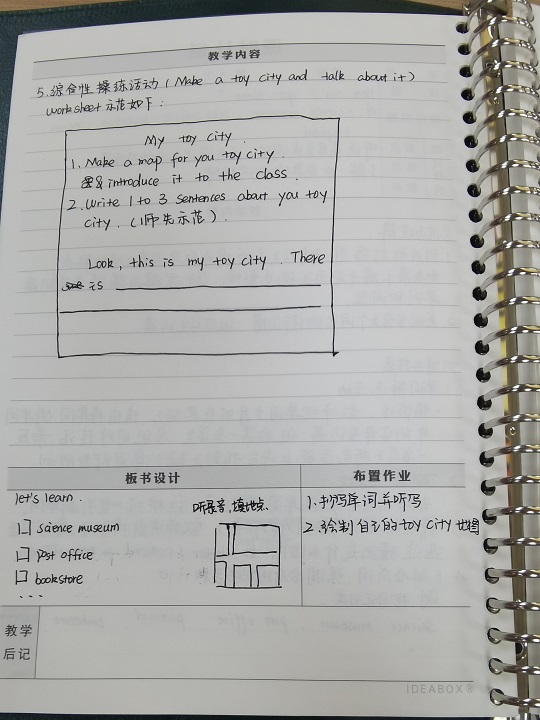 教学内容
5.综合性操练活动 (Make a toy city and talk about it)
worksheet 示范如下:
My toy city.
1. Make a map for you toy city.
& introduce it to the class.
2. Write 1 to 3 sentences about you toy
city. (师先示范).
Look, this is my toy city. There
is
板书设计
布置作业
let's learn.
口 science museum
口 post office
口 bookstore
...
听录音,填地点.
1.抄写单词并听写
2.绘制自己的toy city 地图
教学
后记
IDEABOX®